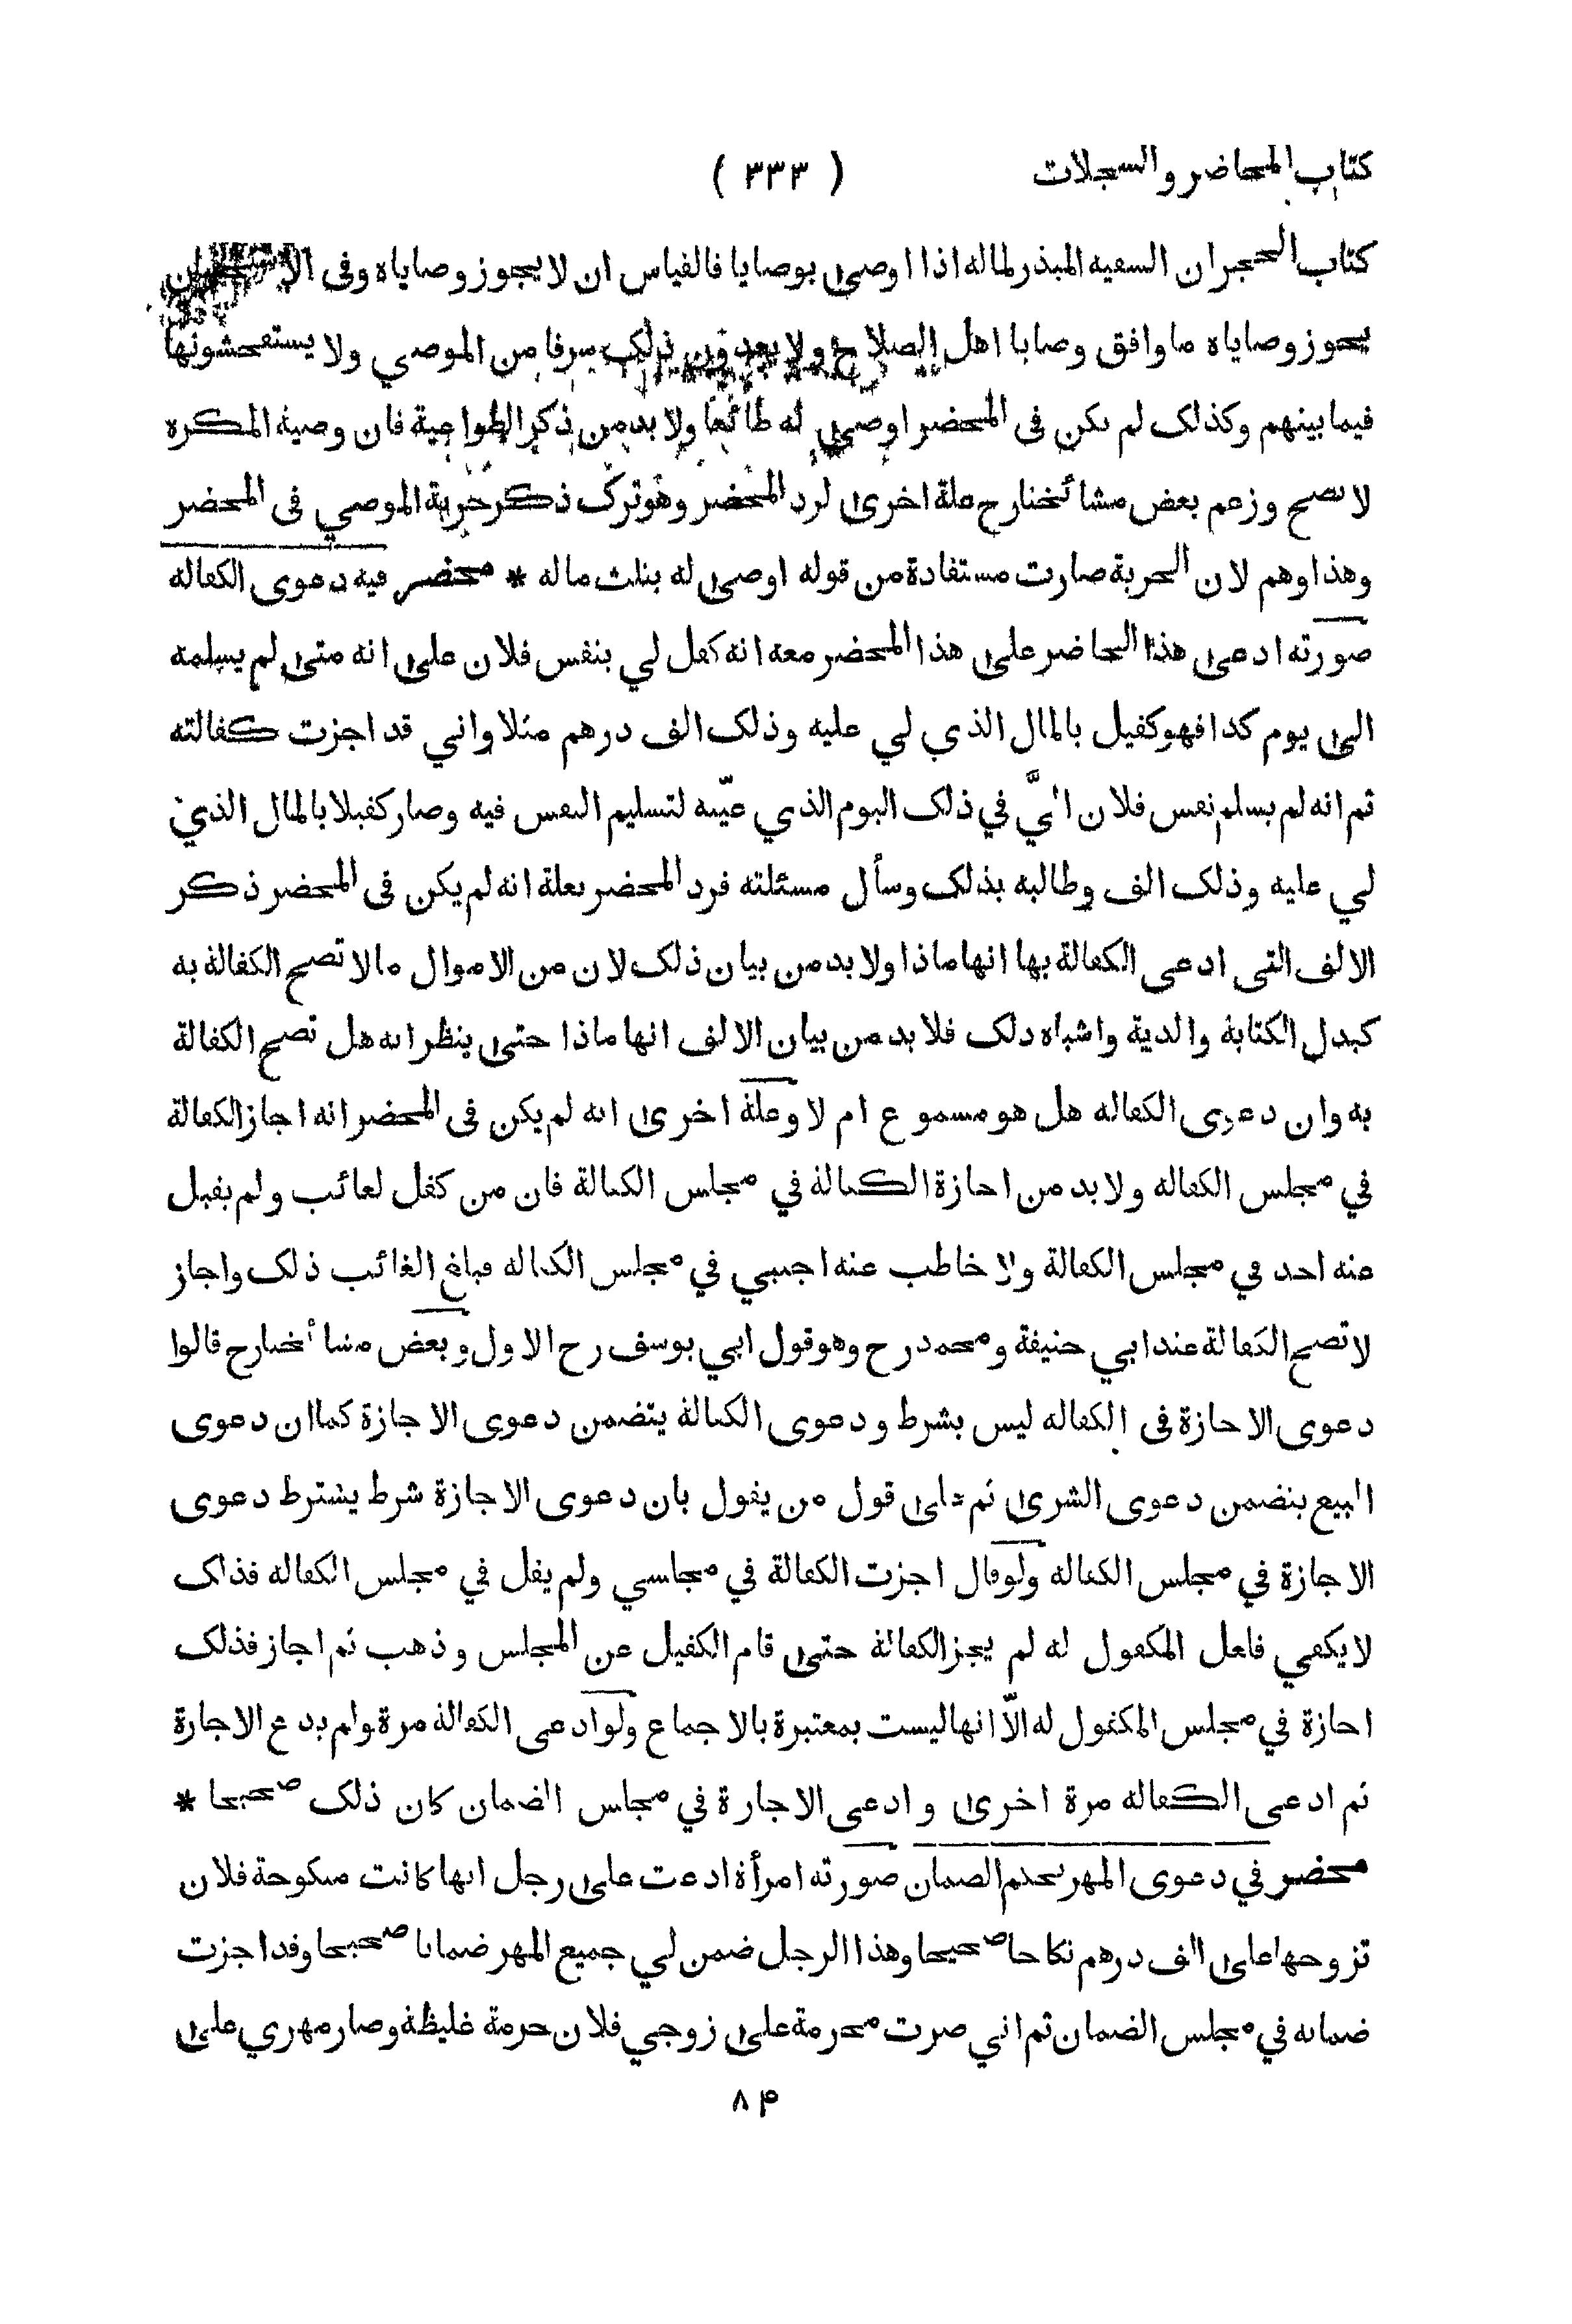 كتاب المحاضر والسجلات ( ٣٣٣ )
كتاب الحجر ان السفيه المبذر لماله اذا اوصى بوصايا فالقياس ان لا يجوز وصاياه وفى الاستحسان
يجوز وصاياه ما وافق وصايا اهل الصلاح ولا يعدون ذلك سرفا من الموصي ولا يستفحشونها
فيما بينهم وكذلك لم يكن فى المحضر اوصى له طائعا ولا بد من ذكر الطواعية فان وصية المكره
لا تصح وزعم بعض مشائخنا رح علة اخرى لرد المحضر وهو ترك ذكر حرية الموصي فى المحضر
وهذا وهم لان الحرية صارت مستفادة من قوله اوصى له بثلث ماله * محضر فيه دعوى الكفالة
صورته ادعى هذا الحاضر على هذا المحضر معه انه كفل لي بنفس فلان على انه متى لم يسلمه
الى يوم كذا فهو كفيل بالمال الذي لي عليه وذلك الف درهم مثلا واني قد اجزت كفالته
ثم انه لم يسلم نفس فلان اليَّ في ذلك اليوم الذي عيّنه لتسليم النفس فيه وصار كفيلا بالمال الذي
لي عليه وذلك الف وطالبه بذلك وسأل مسئلته فرد المحضر بعلة انه لم يكن فى المحضر ذكر
الالف التى ادعى الكفالة بها انها ماذا ولا بد من بيان ذلك لان من الاموال ما لا تصح الكفالة به
كبدل الكتابة والدية واشباه ذلك فلا بد من بيان الالف انها ماذا حتى ينظر انه هل تصح الكفالة
به وان دعوى الكفالة هل هو مسموع ام لا وعلة اخرى انه لم يكن فى المحضر انه اجاز الكفالة
في مجلس الكفالة ولا بد من اجازة الكفالة في مجلس الكفالة فان من كفل لغائب ولم يقبل
عنه احد في مجلس الكفالة ولا خاطب عنه اجنبي في مجلس الكفالة فبلغ الغائب ذلك واجاز
لا تصح الكفالة عند ابي حنيفة ومحمد رح وهو قول ابي يوسف رح الاول وبعض مشائخنا رح قالوا
دعوى الاجازة فى الكفالة ليس بشرط ودعوى الكفالة يتضمن دعوى الاجازة كما ان دعوى
البيع يتضمن دعوى الشرى ثم على قول من يقول بان دعوى الاجازة شرط يشترط دعوى
الاجازة في مجلس الكفالة ولو قال اجزت الكفالة في مجلسي ولم يقل في مجلس الكفالة فذلك
لا يكفي فلعل المكفول له لم يجز الكفالة حتى قام الكفيل عن المجلس وذهب ثم اجاز فذلك
اجازة في مجلس المكفول له الاّ انها ليست بمعتبرة بالاجماع ولو ادعى الكفالة مرة ولم يدع الاجازة
ثم ادعى الكفالة مرة اخرى وادعى الاجازة في مجلس الضمان كان ذلك صحيحا *
محضر في دعوى المهر بحكم الضمان صورته امرأة ادعت على رجل انها كانت منكوحة فلان
تزوجها على الف درهم نكاحا صحيحا وهذا الرجل ضمن لي جميع المهر ضمانا صحيحا وقد اجزت
ضمانه في مجلس الضمان ثم اني صرت محرمة على زوجي فلان حرمة غليظة وصار مهري على
٨٤